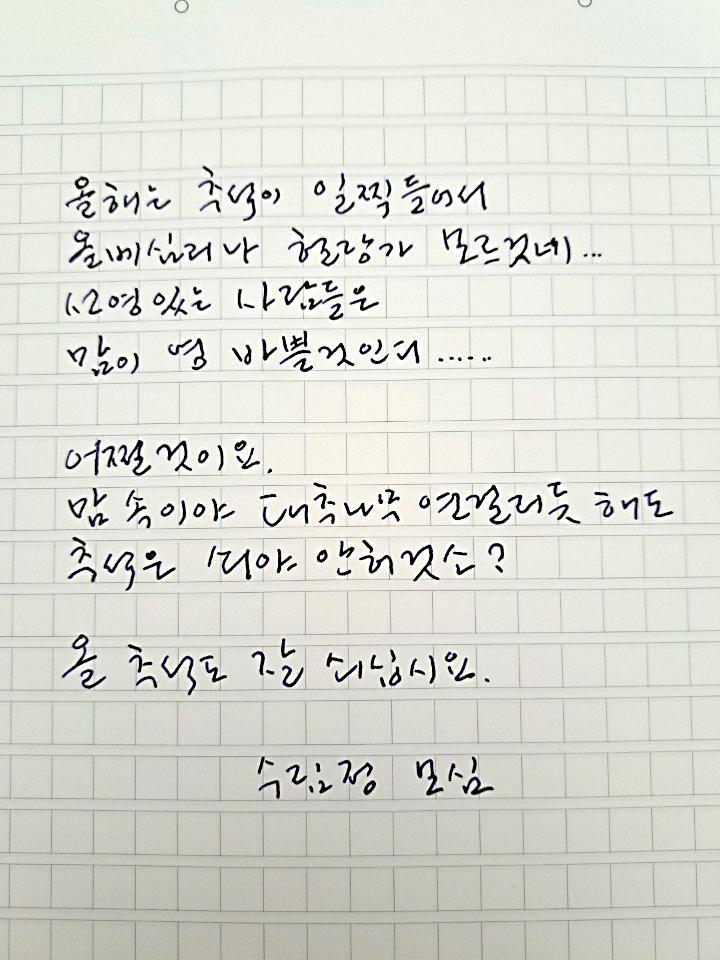 올해는 추석이 일찍 들어서
올베심리나 헐랑가 모르것네...
소영있는 사람들은
맘이 영 바쁠것인디......
어쩔것이요.
맘 속이야 대추나무 연걸리듯 해도
추석은 쇠야 안허것소?
올 추석도 잘 쇠십시요.
수림정 모심